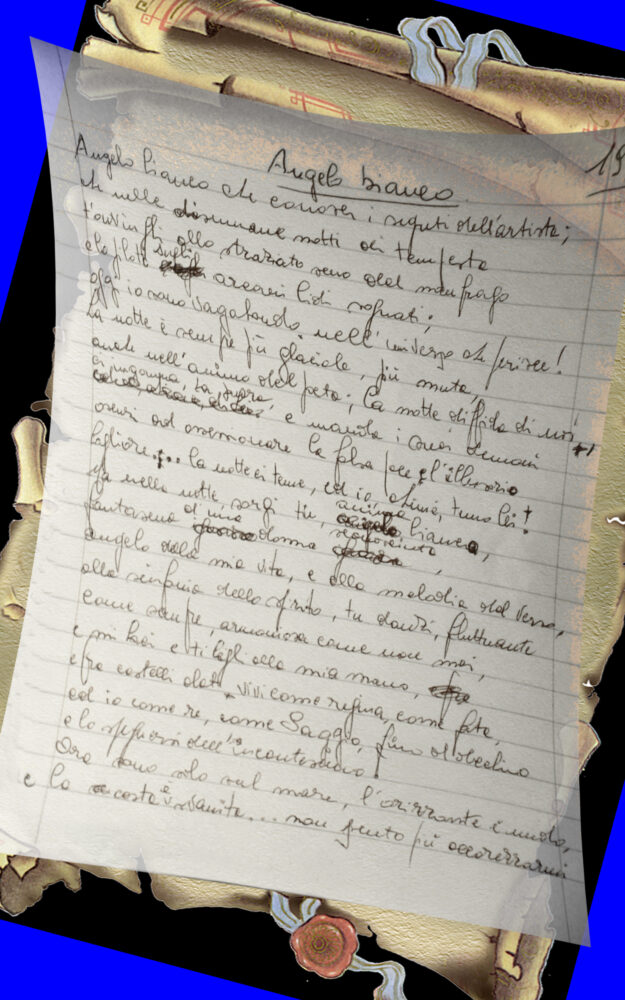 19
Angelo bianco
Angelo bianco che conosci i segreti dell'artista;
che nelle disumane notti di tempesta
t'avvinghi allo straziato seno del naufrago
e lo piloti sugli arcani lidi sognati;
oggi io sono vagabondo nell'universo che ferisce!
La notte è sempre più glaciale, più muta,
anche nell'animo del poeta; la notte diffida di noi
ci inganna, ta
e manda i suoi demoni
oscuri ad assassinare la falsa pace e l'illusorio
bagliore.... la notte ci teme, ed io, ahimè, temo lei!
Ma nella notte, sorgi tu, anima bianca,
fantasma d'una donna
angelo della mia vita, e alla melodia del verso,
alla sinfonia dello spirito, tu danzi, fluttuante
come sempre, armoniosa come non mai,
e mi baci e ti leghi alla mia mano,
e fra castelli dorati vivi come regina, come fata,
ed io come re, come Saggio, fino al declino
e lo spegnersi dell'incantesimo!
Ora sono solo sul mare, l'orizzonte è muto,
e la costa è svanita... non sento più accarezzarmi